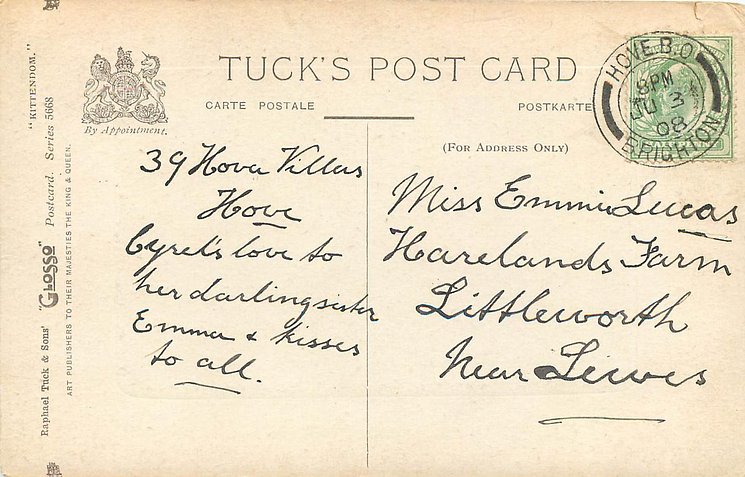 TUCK'S POST CARD
CARTE POSTALE
POSTKARTE
By Appointment.
(FOR ADDRESS ONLY)
HOVE B.O
8 PM
JU 3
08
BRIGHTON
39 Hova Villas
Hove
Cyrel's love to
her darling sister
Emma & kisses
to all.
Miss Emmie Lucas
Harelands Farm
Littleworth
Near Lewes
"KITTENDOM."
Raphael Tuck & Sons' "GLOSSO" Postcard. Series 5668
ART PUBLISHERS TO THEIR MAJESTIES THE KING & QUEEN.